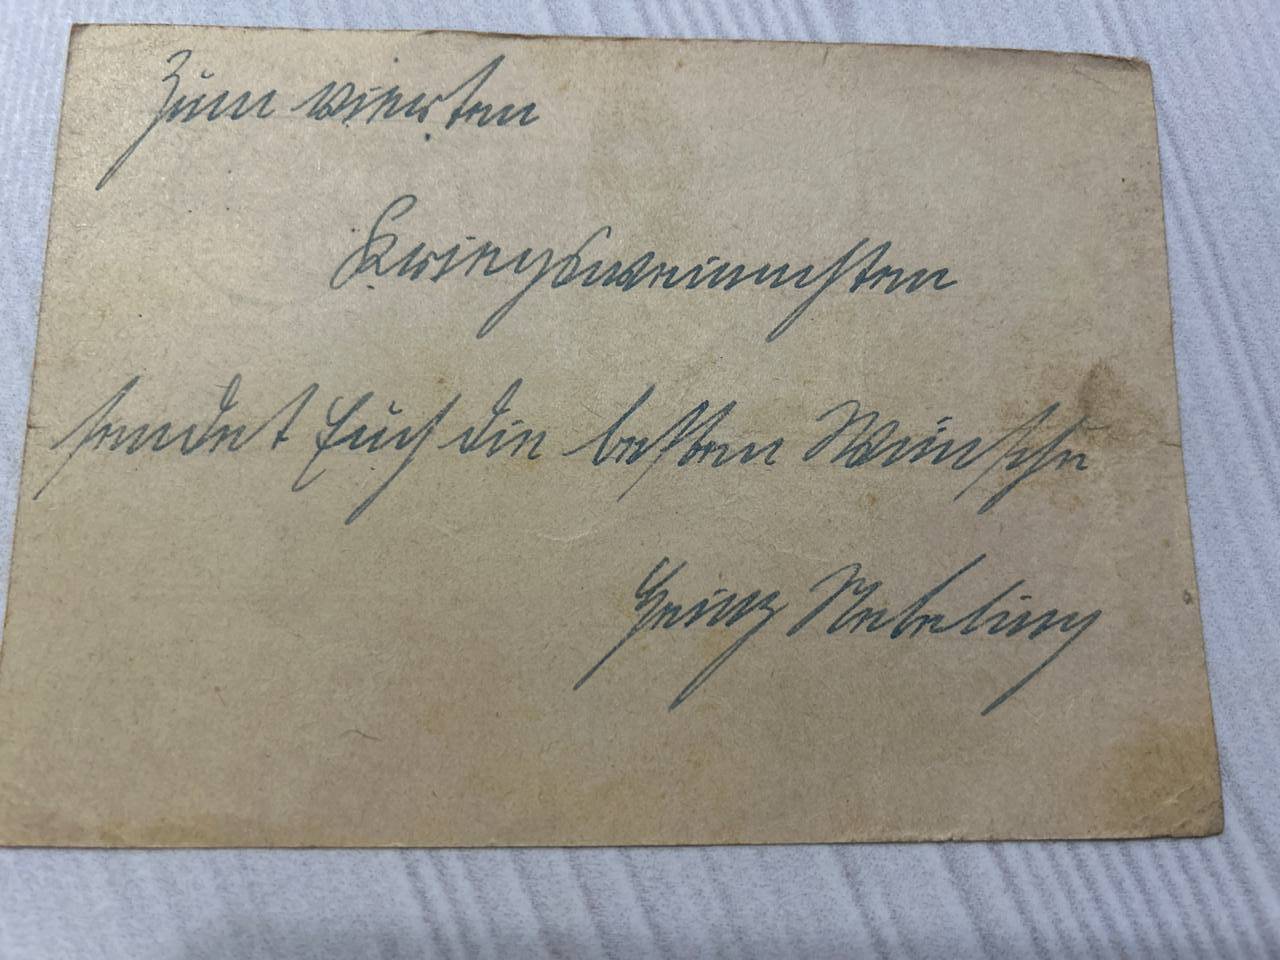 Zum vierten
Kriegsweinachten
sendet Euch die besten Wünsche
Heinz Nebeling